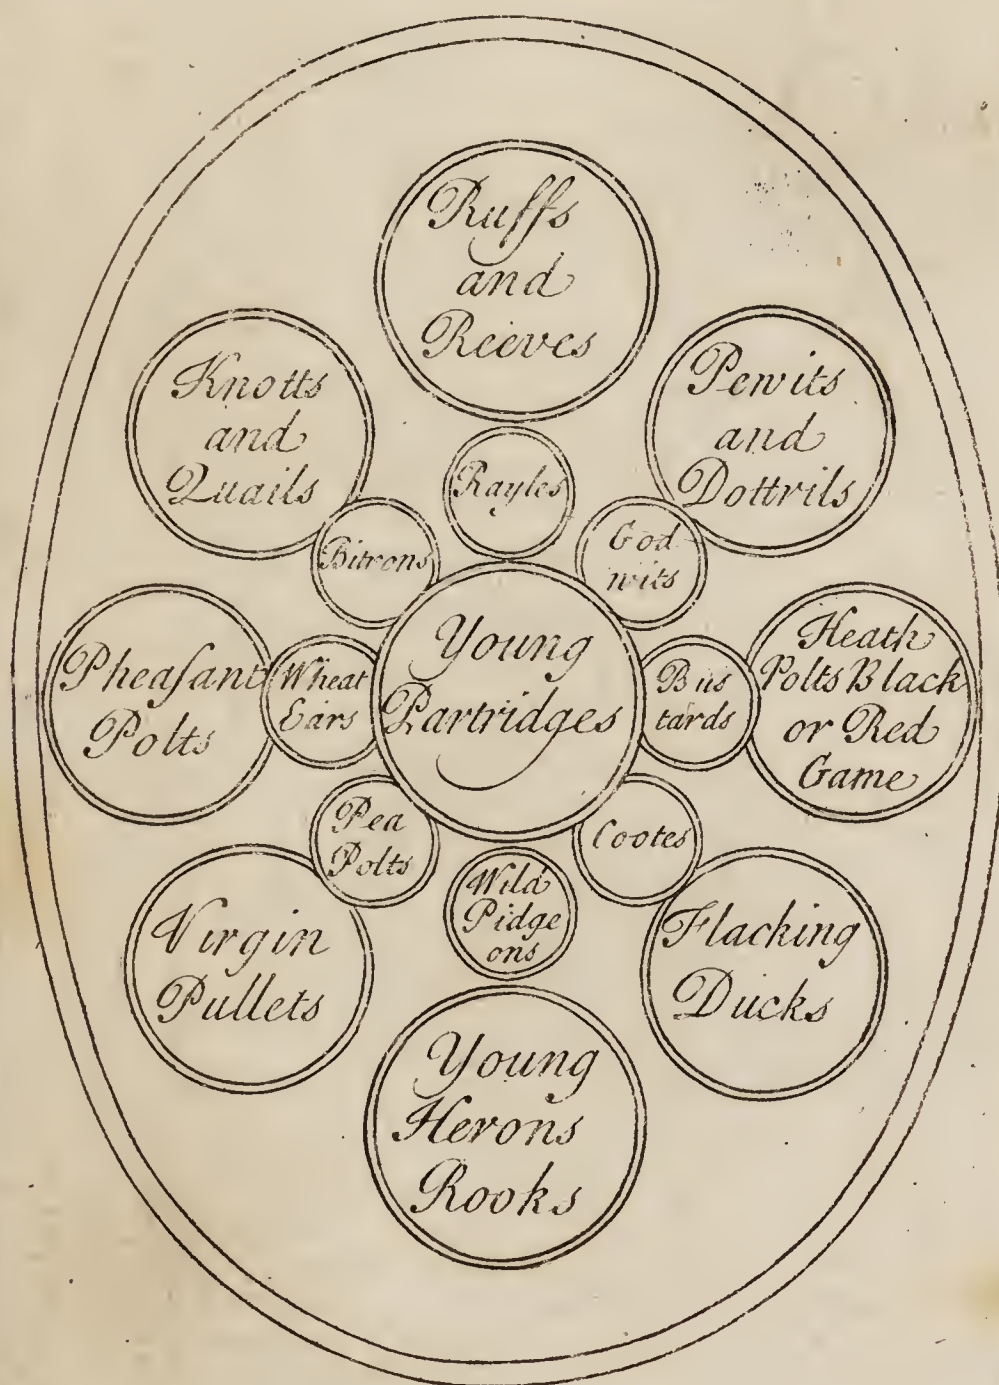 Ruffs
and
Reeves
Knotts
and
Quails
Pewits
and
Dottrils
Rayles
Bitrons
God
wits
Pheaſant
Polts
Wheat
Ears
Young
Partridges
Bus
tards
Heath
Polts Black
or Red
Game
Pea
Polts
Cootes
Wild
Pidge
ons
Virgin
Pullets
Flacking
Ducks
Young
Herons
Rooks